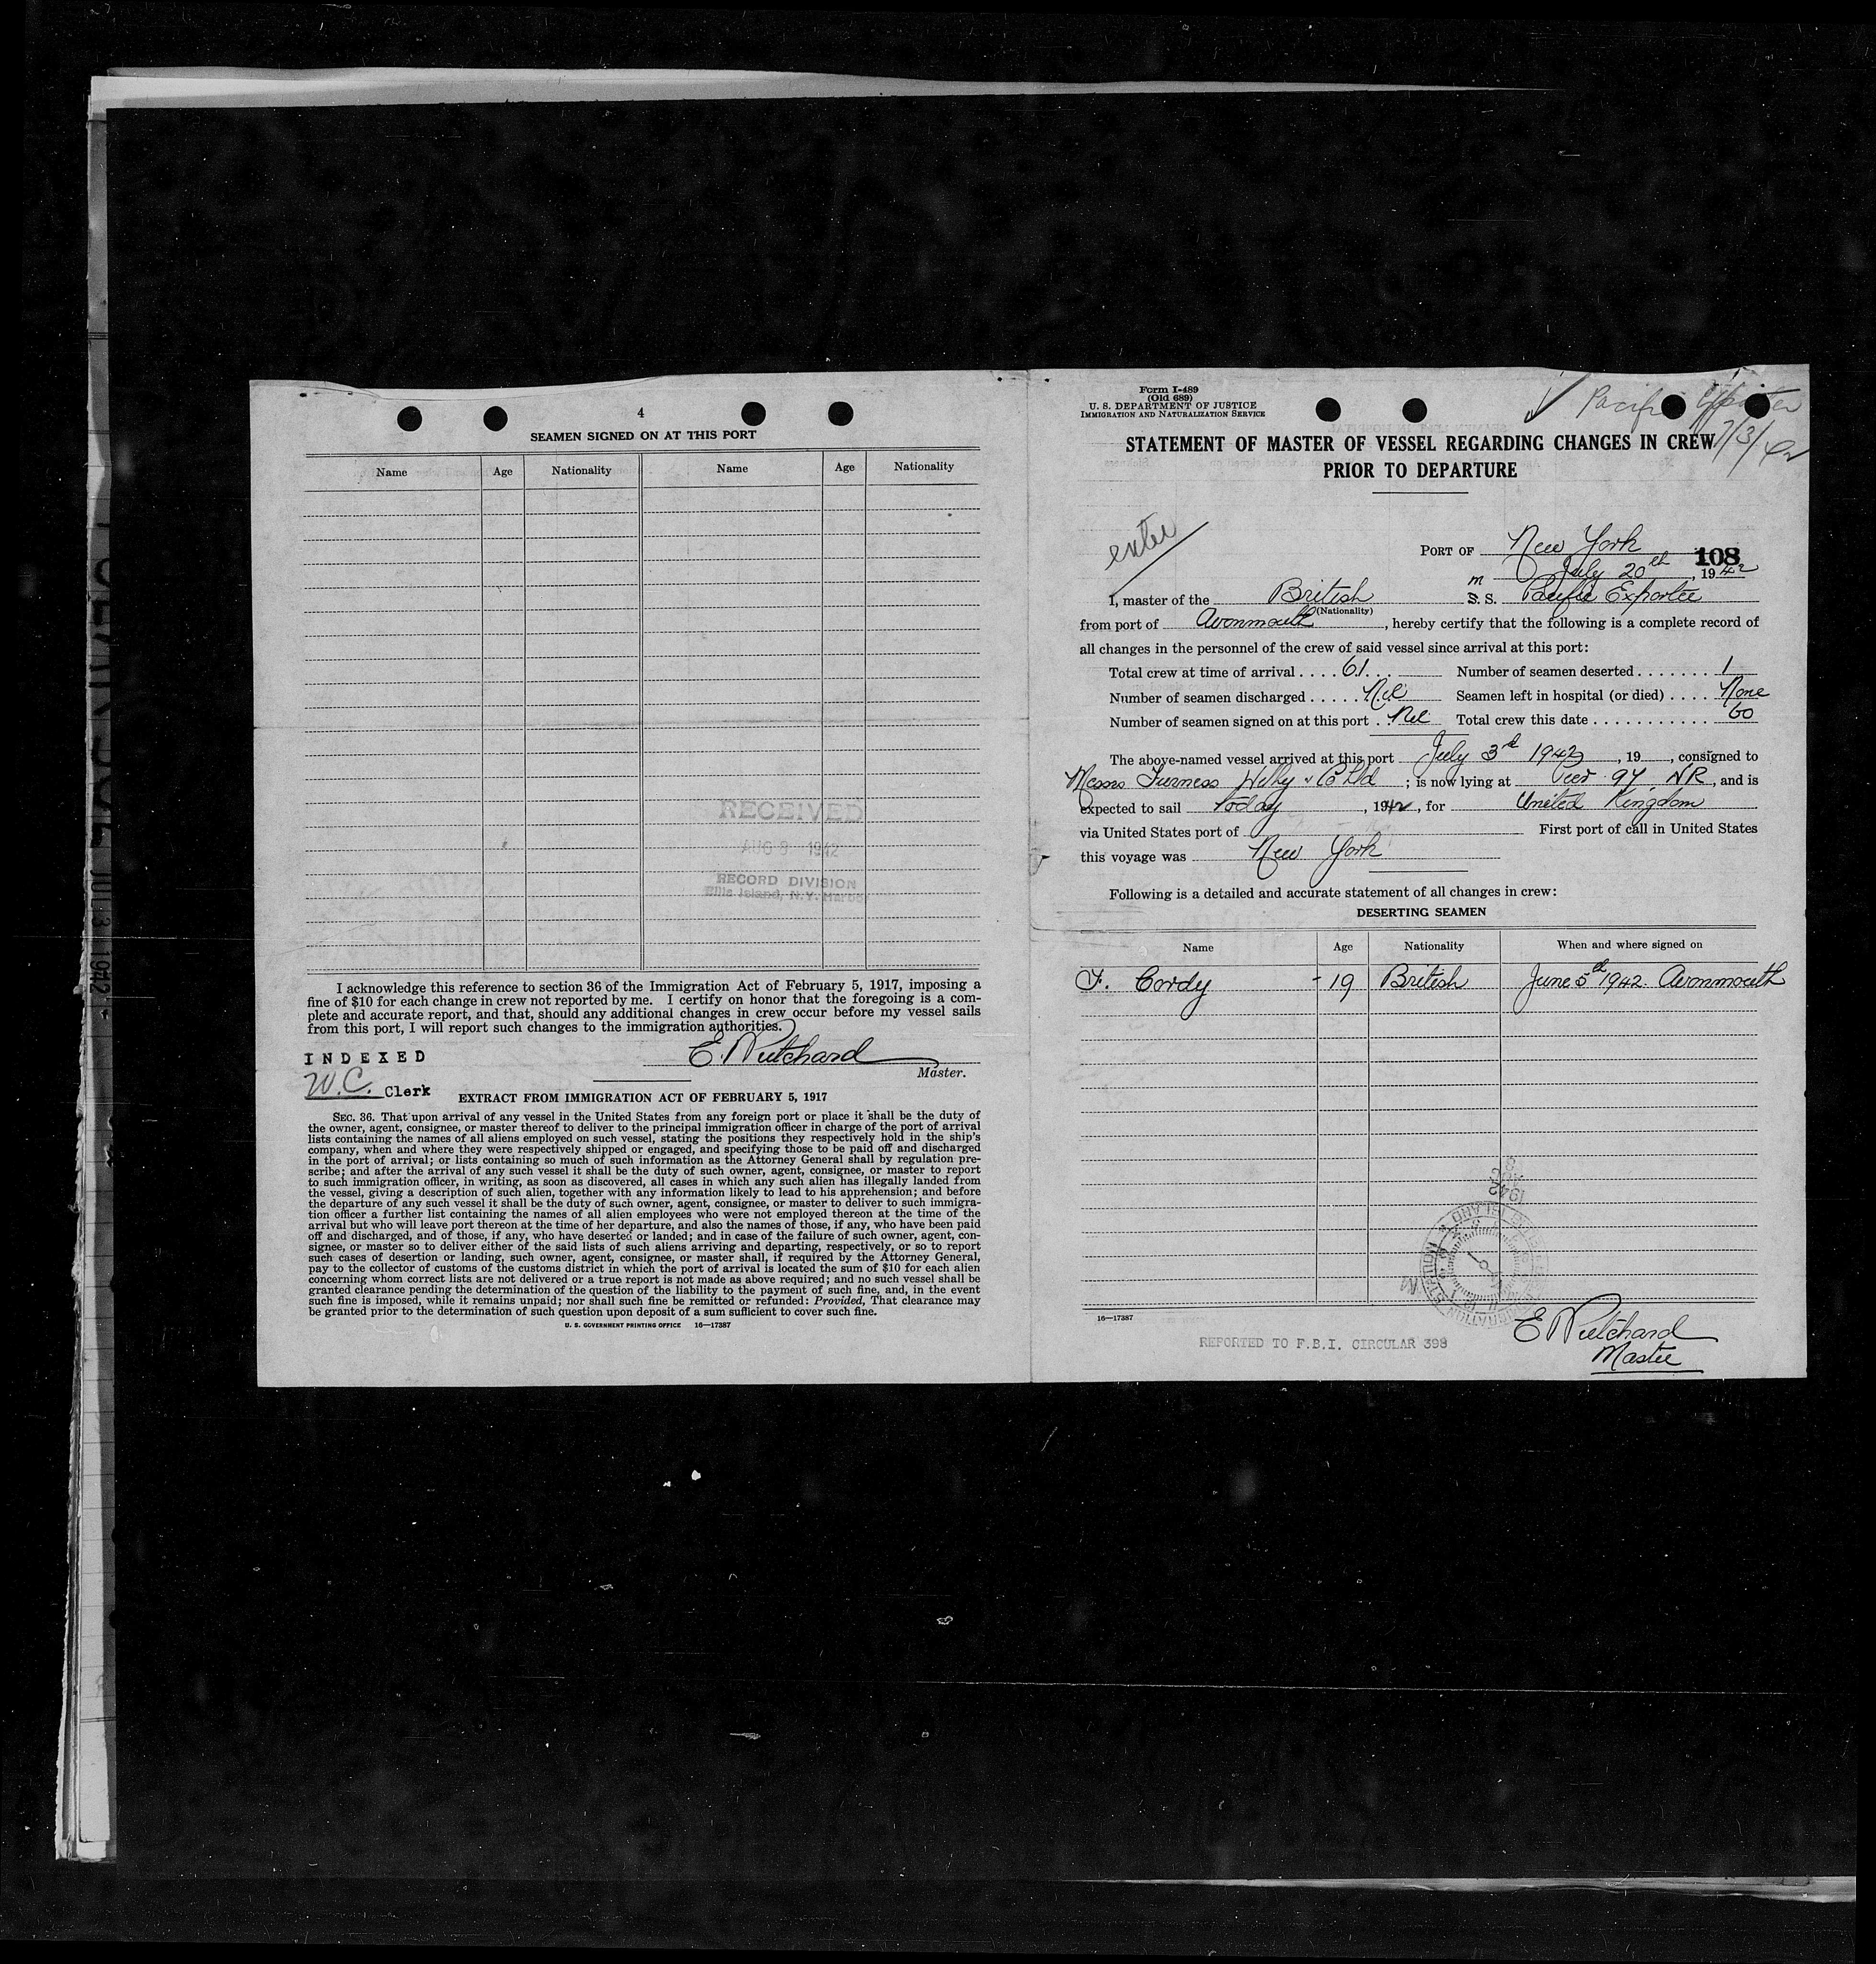 4
SEAMEN SIGNED ON AT THIS PORT
Name Age Nationality Name Age Nationality
RECEIVED
AUG 8 1942
RECORD DIVISION
Ellis Island, N.Y. Harbor
I acknowledge this reference to section 36 of the Immigration Act of February 5, 1917, imposing a
fine of $10 for each change in crew not reported by me. I certify on honor that the foregoing is a com-
plete and accurate report, and that, should any additional changes in crew occur before my vessel sails
from this port, I will report such changes to the immigration authorities.
INDEXED
E. Pritchard
Master.
W.C. Clerk
EXTRACT FROM IMMIGRATION ACT OF FEBRUARY 5, 1917
SEC. 36. That upon arrival of any vessel in the United States from any foreign port or place it shall be the duty of
the owner, agent, consignee, or master thereof to deliver to the principal immigration officer in charge of the port of arrival
lists containing the names of all aliens employed on such vessel, stating the positions they respectively hold in the ship's
company, when and where they were respectively shipped or engaged, and specifying those to be paid off and discharged
in the port of arrival; or lists containing so much of such information as the Attorney General shall by regulation pre-
scribe; and after the arrival of any such vessel it shall be the duty of such owner, agent, consignee, or master to report
to such immigration officer, in writing, as soon as discovered, all cases in which any such alien has illegally landed from
the vessel, giving a description of such alien, together with any information likely to lead to his apprehension; and before
the departure of any such vessel it shall be the duty of such owner, agent, consignee, or master to deliver to such immigra-
tion officer a further list containing the names of all alien employees who were not employed thereon at the time of the
arrival but who will leave port thereon at the time of her departure, and also the names of those, if any, who have been paid
off and discharged, and of those, if any, who have deserted or landed; and in case of the failure of such owner, agent, con-
signee, or master so to deliver either of the said lists of such aliens arriving and departing, respectively, or so to report
such cases of desertion or landing, such owner, agent, consignee, or master shall, if required by the Attorney General,
pay to the collector of customs of the customs district in which the port of arrival is located the sum of $10 for each alien
concerning whom correct lists are not delivered or a true report is not made as above required; and no such vessel shall be
granted clearance pending the determination of the question of the liability to the payment of such fine, and, in the event
such fine is imposed, while it remains unpaid; nor shall such fine be remitted or refunded: Provided, That clearance may
be granted prior to the determination of such question upon deposit of a sum sufficient to cover such fine.
U. S. GOVERNMENT PRINTING OFFICE 16—17387
Form I-489
(Old 689)
U. S. DEPARTMENT OF JUSTICE
IMMIGRATION AND NATURALIZATION SERVICE
Pacific Exporter
7/3/42
STATEMENT OF MASTER OF VESSEL REGARDING CHANGES IN CREW
PRIOR TO DEPARTURE
enter
PORT OF New York 108
July 20th, 1942
I, master of the British m S. S. Pacific Exporter
(Nationality)
from port of Avonmouth, hereby certify that the following is a complete record of
all changes in the personnel of the crew of said vessel since arrival at this port:
Total crew at time of arrival .... 61 Number of seamen deserted ....... 1
Number of seamen discharged ..... Nil Seamen left in hospital (or died) .... None
Number of seamen signed on at this port .. Nil Total crew this date ........... 60
The above-named vessel arrived at this port July 3rd 1942, 19 , consigned to
Messrs Furness Withy & Co Ltd ; is now lying at Pier 97 NR, and is
expected to sail today, 1942, for United Kingdom
via United States port of First port of call in United States
this voyage was New York
Following is a detailed and accurate statement of all changes in crew:
DESERTING SEAMEN
Name Age Nationality When and where signed on
F. Cordy - 19 British June 5th 1942 Avonmouth
1942
AUG
8
16—17387
REPORTED TO F.B.I. CIRCULAR 398
E Pritchard
Master
JUL 3 1942